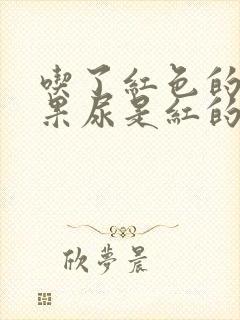 喫了紅色的
果尿是紅的
欣夢晨